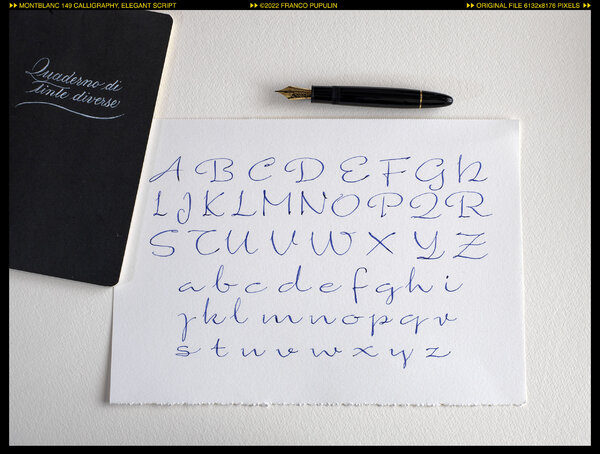 MONTBLANC 149 CALLIGRAPHY, ELEGANT SCRIPT
©2022 FRANCO PUPULIN
ORIGINAL FILE 6132x8176 PIXELS
Quaderno di
tinte diverse
A B C D E F G H
I J K L M N O P Q R
S T U V W X Y Z
a b c d e f g h i
j k l m n o p q r
s t u v w x y z